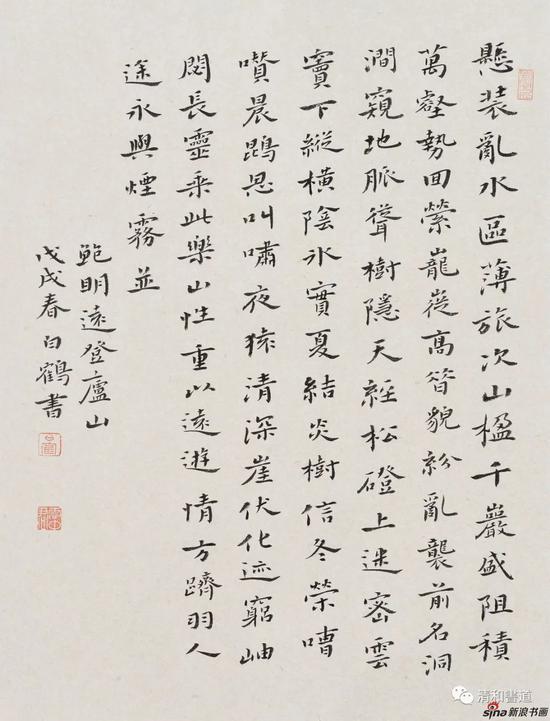 懸装亂水區薄旅次山楹千巖盛阻積
萬壑勢回縈巃嵸高昔貌紛亂襲前名洞
澗窺地脈聳樹隱天經松磴上迷密雲
竇下縱橫陰冰實夏結炎樹信冬榮嘈
囋晨鵾思叫嘯夜猿清深崖伏化迹窮岫
閟長靈乘此樂山性重以遠遊情方躋羽人
途永與煙霧並
鮑明遠登廬山
戊戌春白鶴書
清和書道
sina新浪书画